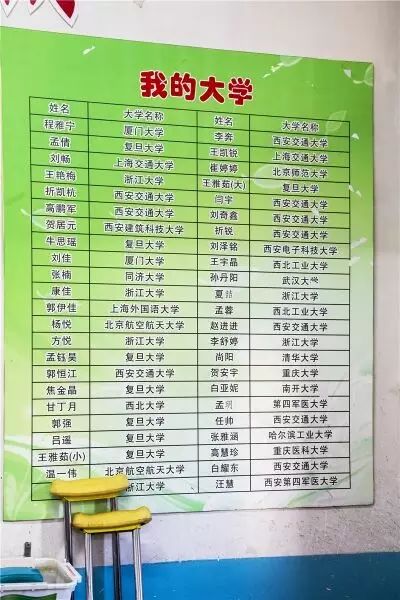 我的大学
姓名 大学名称 姓名 大学名称
程雅宁 厦门大学 李奔 西安交通大学
孟倩 复旦大学 王凯锐 上海交通大学
刘畅 上海交通大学 崔婷婷 北京师范大学
王艳梅 浙江大学 王雅茹(大) 复旦大学
折凯杭 西安交通大学 闫宇 西安交通大学
高鹏军 西安交通大学 刘奇鑫 西安交通大学
贺居元 西安建筑科技大学 折锐 西安交通大学
牛思瑶 复旦大学 刘泽铭 西安电子科技大学
刘佳 厦门大学 王宇晶 西北工业大学
张楠 同济大学 孙丹阳 武汉大学
康佳 浙江大学 夏 浙江大学
郭伊佳 上海外国语大学 孟蓉 西北工业大学
杨悦 北京航空航天大学 赵进进 西安交通大学
方悦 浙江大学 李舒婷 浙江大学
孟钰昊 复旦大学 尚阳 清华大学
郭恒江 西安交通大学 贺安宇 重庆大学
焦金晶 复旦大学 白亚妮 南开大学
甘丁月 西北大学 孟 第四军医大学
郭强 复旦大学 任帅 西安交通大学
吕遥 复旦大学 张雅涵 哈尔滨工业大学
王雅茹(小) 复旦大学 高慧珍 重庆医科大学
温一伟 北京航空航天大学 白耀东 西安交通大学
浙江大学 汪慧 西安第四军医大学